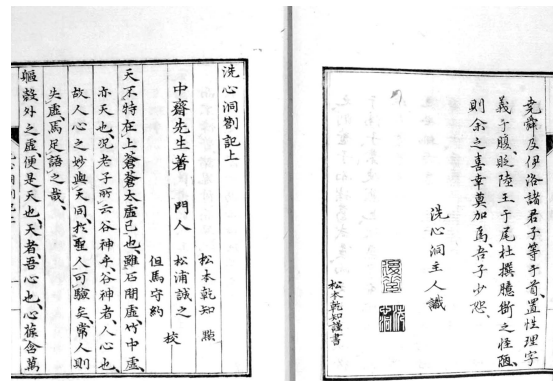 堯舜及伊洛諸君子等于首、置性理字
義于腹、貶陸王于尾、杜撰臆断之怪陋、
則余之喜幸莫加焉、吾子少恕、
洗心洞主人識
松本乾知謹書
洗心洞劄記上
中齋先生著
門人
松本乾知
松浦誠之
但馬守約
校
天不特在上蒼蒼太虛已也、雖石間虛、竹中虛、
亦天也、況老子所云谷神乎、谷神者、人心也、
故人心之妙與天同、於聖人可驗矣、常人則
失虛、焉足語之哉、
軀殼外之虛、便是天也、天者、吾心也、心葆含萬